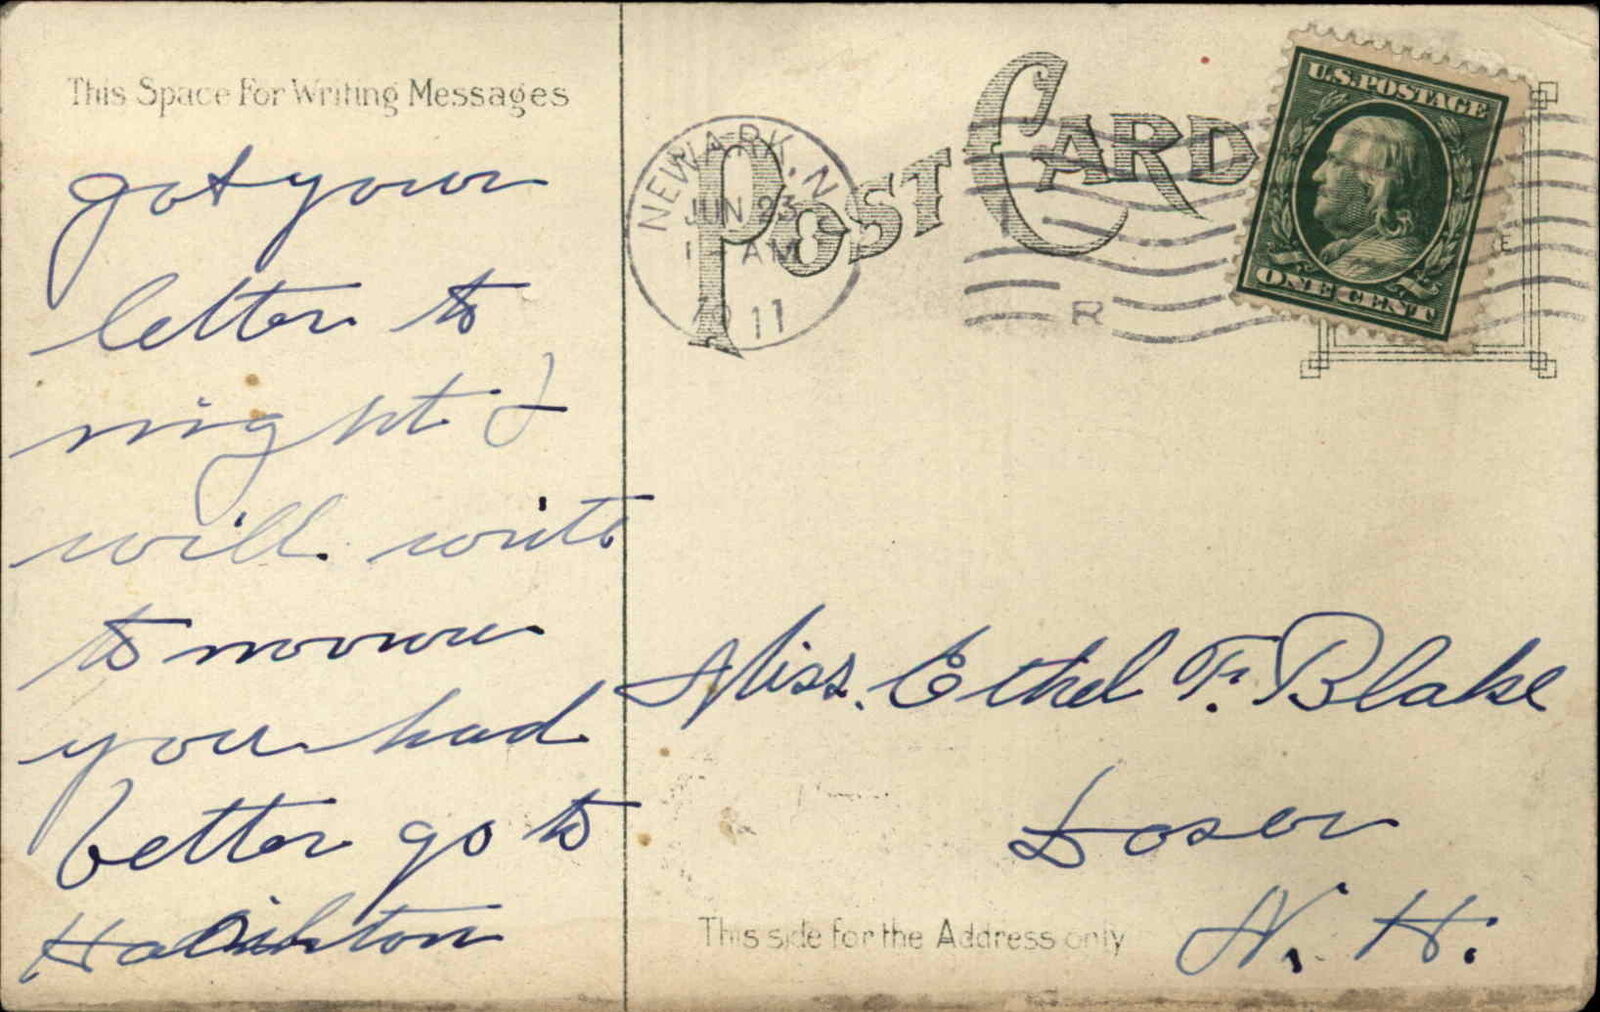 This Space For Writing Messages
got your
letter to
night I
will write
tomorrow
you had
better go to
POST CARD
NEWARK, N
JUN 23
1 - AM
11
R
U.S. POSTAGE
ONE CENT
Miss. Ethel F. Blake
N. H.
This side for the Address only